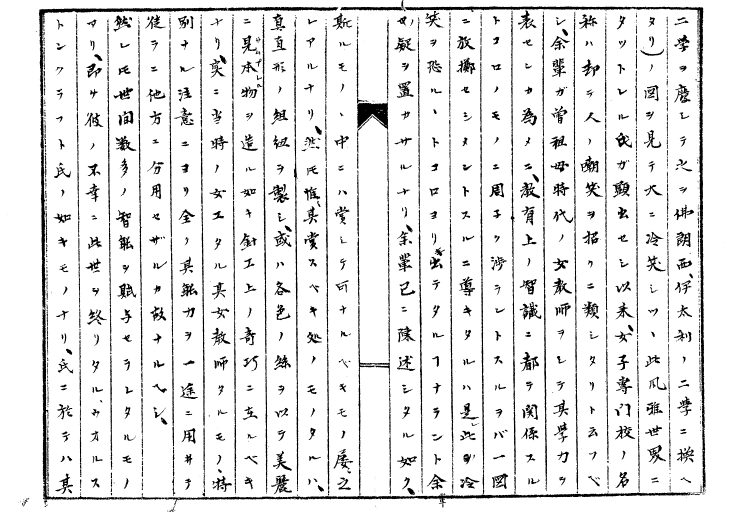 二學ヲ麿シテ之ヲ佛朗西、伊太利ノ二學ニ換ヘ
タリ)ノ図ヲ見テ大ニ冷笑シツヽ此風雅世界ニ
タットレル氏ガ顕出セシ以来、女子専門校ノ名
称ハ却テ人ノ嘲笑ヲ招クニ類シタリト云フベ
シ、余輩ガ曽祖母時代ノ女教師ヲシテ其學力ヲ
表センカ為メニ、教育上ノ智識ニ都テ関係スル
トコロノモノニ周子ク渉ラントスルヲバ一図
ニ放擲セシメントスルニ導キタルハ是レ此ガ冷
笑ヲ恐ルヽトコロヨリ出テタルヿナラント余
輩疑ヲ置カサルナリ、余輩已ニ陳述シタル如ク、
斯ルモノヽ中ニハ賞シテ可ナルベキモノ屡之
レアルナリ、然モ惟其賞スベキ処ノモノタルハ、
真直形ノ組紐ヲ製シ、或ハ各色ノ絲ヲ以テ美麗
ニ見本物ヲ造ル如キ針工上ノ奇巧ニ在ルベキ
ナリ、実ニ当時ノ女工タル其女教師タルモノ、特
別ナル注意ニヨリ全ノ其能力ヲ一途ニ用井テ
徒ラニ他方ニ分用セザルカ故ナルベシ、
然レ𪜈世間数多ノ智能ヲ賦与セラレタルモノ
アリ、即サ彼ノ不幸ニ此世ヲ終リタル、ウオルス
トンクラフト氏ノ如キモノナリ、氏ニ於テハ其